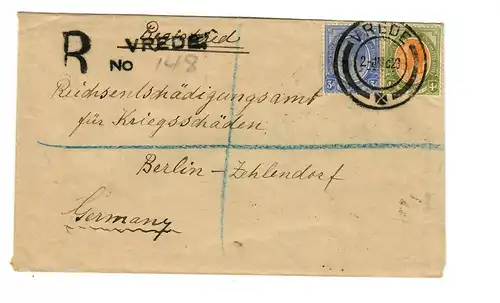 Registered
R VREDE.
No 148
VREDE
3d
4d
Reichsentschädigungsamt
für Kriegsschäden
Berlin-Zehlendorf
Germany